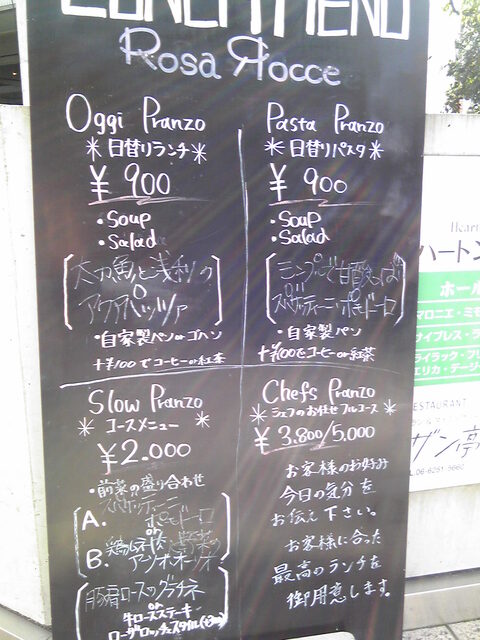 LUNCH MENU
Rosa Rocce
Oggi Pranzo
*日替りランチ*
¥900
・Soup
・Salad
太刀魚と浅利の
アクアパッツァ
・自家製パン or ゴハン
+¥100でコーヒーor紅茶
Pasta Pranzo
*日替りパスタ*
¥900
・Soup
・Salad
シンプルで甘酸っぱい
スパゲッティーニ・ポモドーロ
・自家製パン
+¥100でコーヒーor紅茶
Slow Pranzo
*コースメニュー*
¥2.000
・前菜の盛り合わせ
A. スパゲッティーニ
ポモドーロ
or
B.
アーリオ・オーリオ
豚肩ロースのグラチネ
or
牛ロースステーキ
Chefs Pranzo
*シェフのお任せフルコース*
¥3.800/5,000
お客様のお好み
今日の気分を
お伝え下さい。
お客様に合った
最高のランチを
御用意します。
Heart
ハートン
ホール
マロニエ・ミモ
サイプレス・ラ
ライラック・フリ
エリカ・デージー
RESTAURANT
ザン亭
06-6251-3660